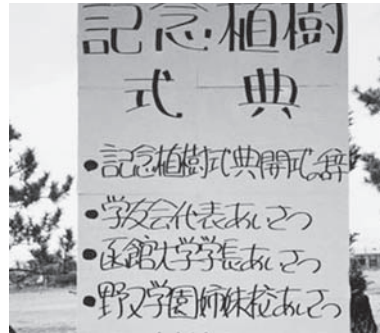 記念植樹
式典
●記念植樹式典開式の辞
●学友会代表あいさつ
●函館大学学長あいさつ
●野又学園姉妹校あいさつ